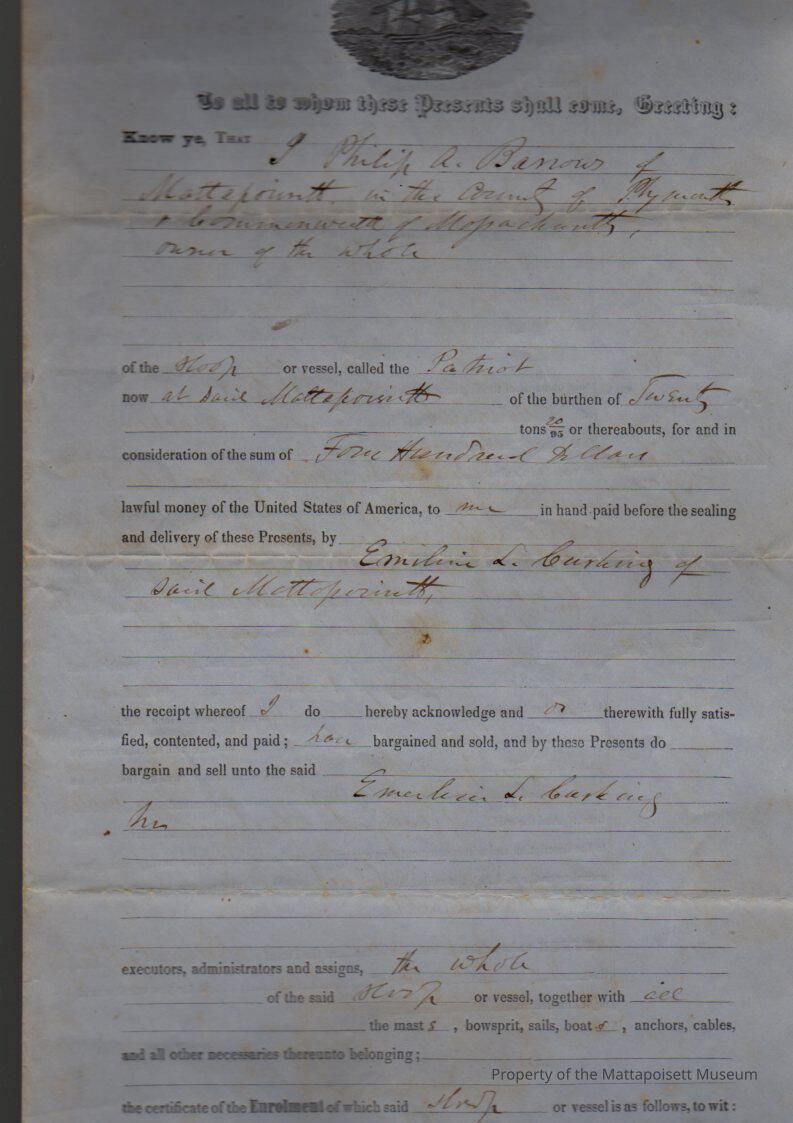 To all to whom these Presents shall come, Greeting:
Know ye, That I Philip A. Barrows of
Mattapoisett in the County of Plymouth
& Commonwealth of Massachusetts,
owner of the whole
of the sloop or vessel, called the Patriot
now at said Mattapoisett of the burthen of Twenty
tons 20/95 or thereabouts, for and in
consideration of the sum of Four Hundred Dollars
lawful money of the United States of America, to me in hand paid before the sealing
and delivery of these Presents, by
L. Cushing of
said Mattapoisett,
the receipt whereof I do hereby acknowledge and therewith fully satis-
fied, contented, and paid; have bargained and sold, and by these Presents do
bargain and sell unto the said
L. Cushing
executors, administrators and assigns, the whole
of the said sloop or vessel, together with all
the mast s, bowsprit, sails, boat s, anchors, cables,
and all other necessaries thereunto belonging;
Property of the Mattapoisett Museum
the certificate of the Enrolment of which said sloop or vessel is as follows, to wit: